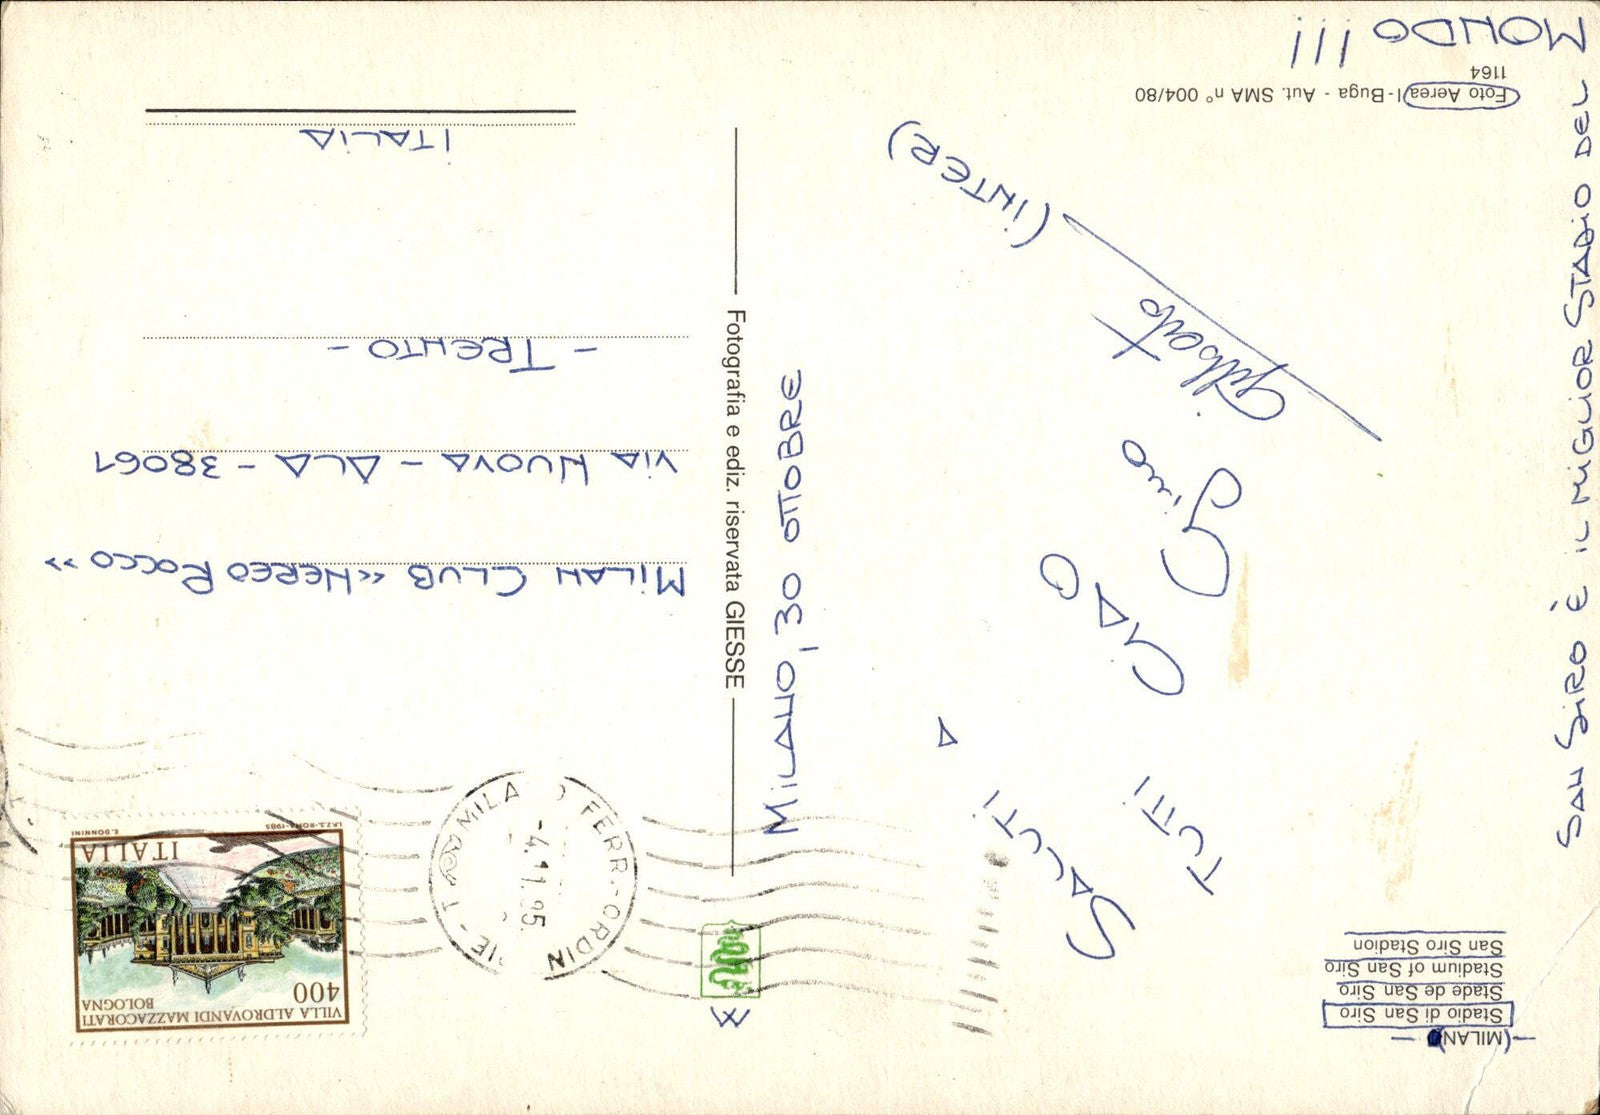 (MILANO)
Stadio di San Siro
Stade de San Siro
Stadium of San Siro
San Siro Stadion
SALUTI A
TUTTI
CIAO
Gino
Gilberto (INTER)
Foto Aerea I-Buga - Aut. SMA n° 004/80
1164
SAN SIRO È IL MIGLIOR STADIO DEL
MONDO !!!
MILANO, 30 OTTOBRE
Fotografia e ediz. riservata GIESSE
VILLA ALDROVANDI MAZZACORATI
BOLOGNA
400
ITALIA
I.P.Z.S.-ROMA-1985
E. DONNINI
MILA
FERR.-ORDIN
-4.11.85
MILAN CLUB «NEREO ROCCO»
VIA NUOVA - ALA - 38061
- TRENTO -
ITALIA